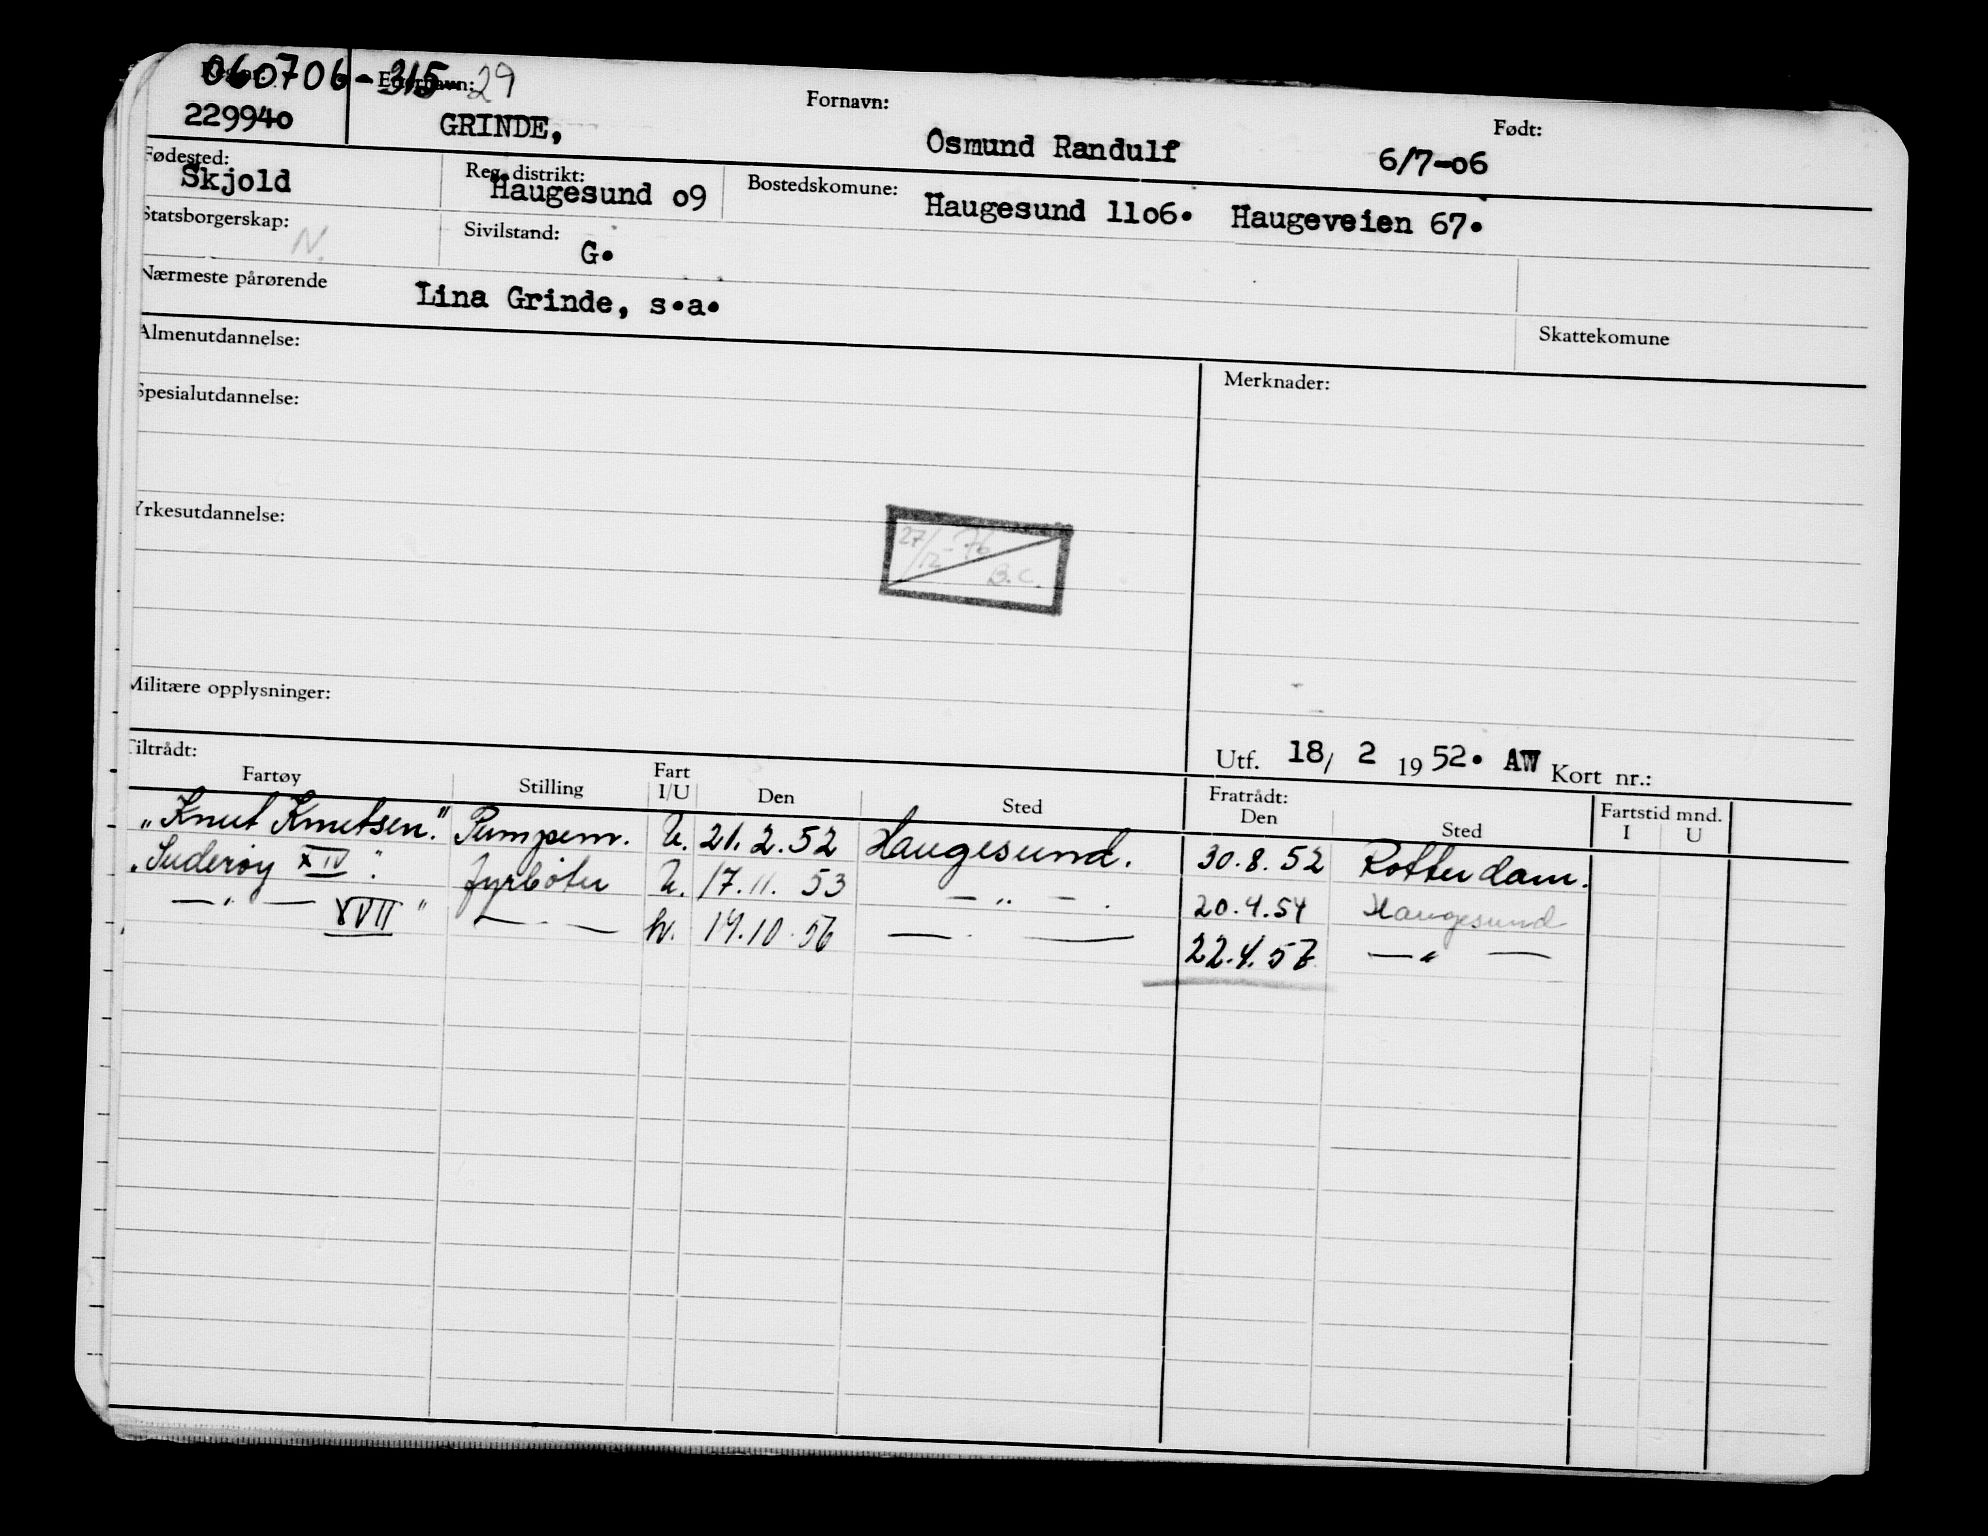 060706-315 29
Etternavn: Fornavn: Født:
229940 GRINDE, Osmund Randulf 6/7-o6
Fødested: Reg. distrikt: Bostedskomune:
Skjold Haugesund o9 Haugesund 11o6. Haugeveien 67.
Statsborgerskap: N. Sivilstand: G.
Nærmeste pårørende Lina Grinde, s.a.
Skattekomune
Almenutdannelse: Merknader:
Spesialutdannelse:
Yrkesutdannelse:
27/12 - 76
B.C.
Militære opplysninger:
Utf. 18/ 2 19 52. AW Kort nr.:
Tiltrådt: Fratrådt: Fartstid mnd.
Fartøy Stilling Fart I/U Den Sted Den Sted I U
"Knut Knutsen." Pumpem. U. 21.2.52 Haugesund. 30.8.52 Rotterdam.
"Suderøy XIV". fyrbøter U. 17.11. 53 — " — . 20.4.54 Haugesund
— " — XVII " — — 19.10.56 — . — 22.4.57 — " —